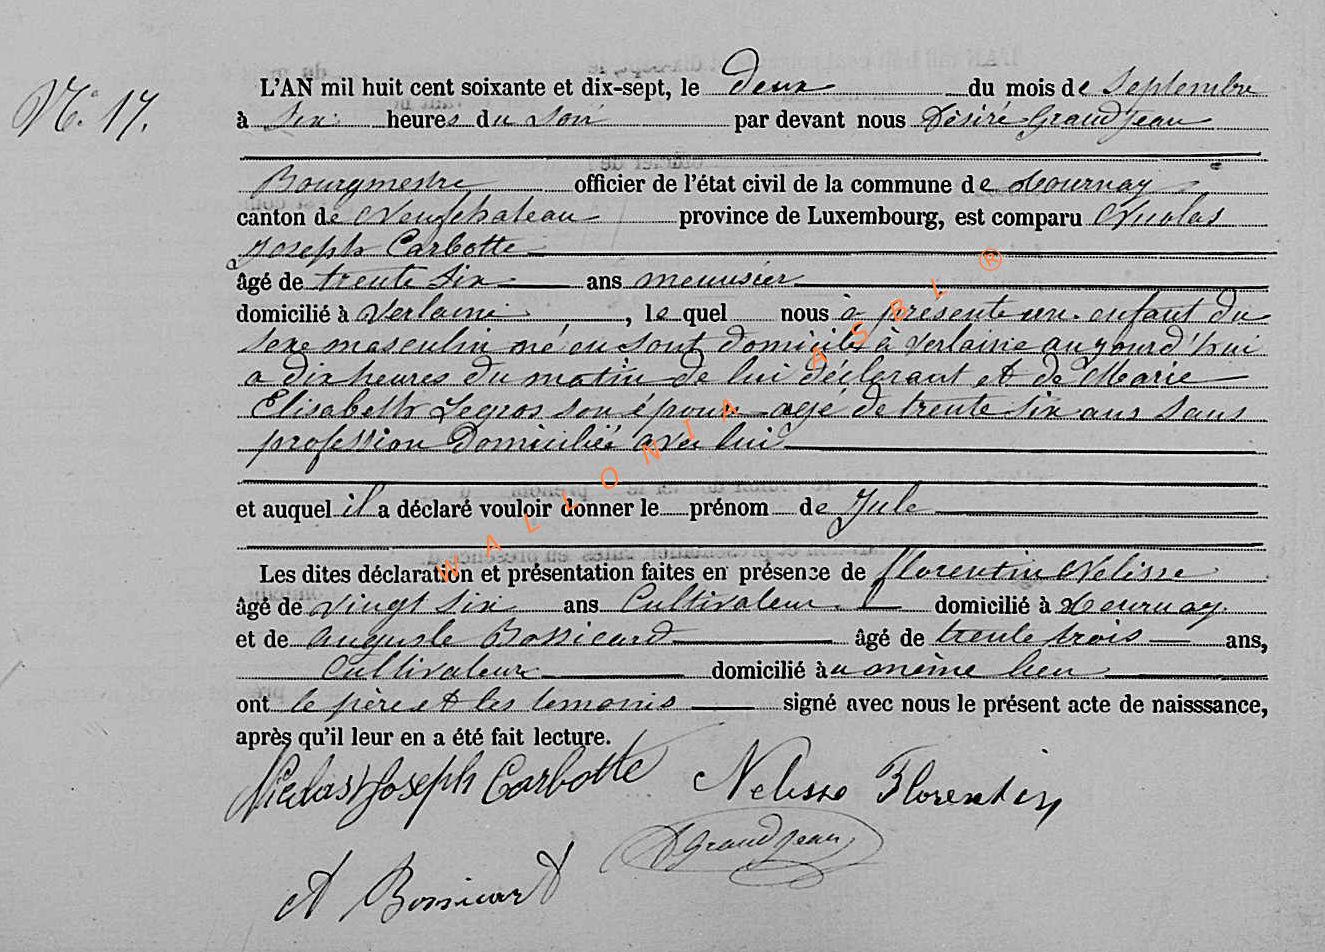 N.° 17.
L'AN mil huit cent soixante et dix-sept, le deux du mois de Septembre
à Six heures du Soir par devant nous Désiré Grandjean
Bourgmestre officier de l'état civil de la commune de Tournay
canton de Neufchateau province de Luxembourg, est comparu Nicolas
Joseph Carbotte
âgé de trente Six ans menuisier
domicilié à Verlaine, le quel nous à présenté un enfant du
Sexe masculin né en sont domicile à Verlaine aujourd'hui
a dix heures du matin de lui déclarant et de Marie
Elisabeth Legros son épouse agé de trente six ans Sans
profession Domiciliée avec lui
et auquel il a déclaré vouloir donner le prénom de Jule
Les dites déclaration et présentation faites en présence de florentin Nelisse
âgé de Vingt Six ans Cultivateur domicilié à Tournay
et de Auguste Bossicard âgé de trente trois ans,
Cultivateur domicilié àu même lieu
ont le père et les temoins signé avec nous le présent acte de naisssance,
après qu'il leur en a été fait lecture.
Nicolas Joseph Carbotte Nelisse Florentin
D Grandjean
A Bossicard
WALLONIA ASBL ®